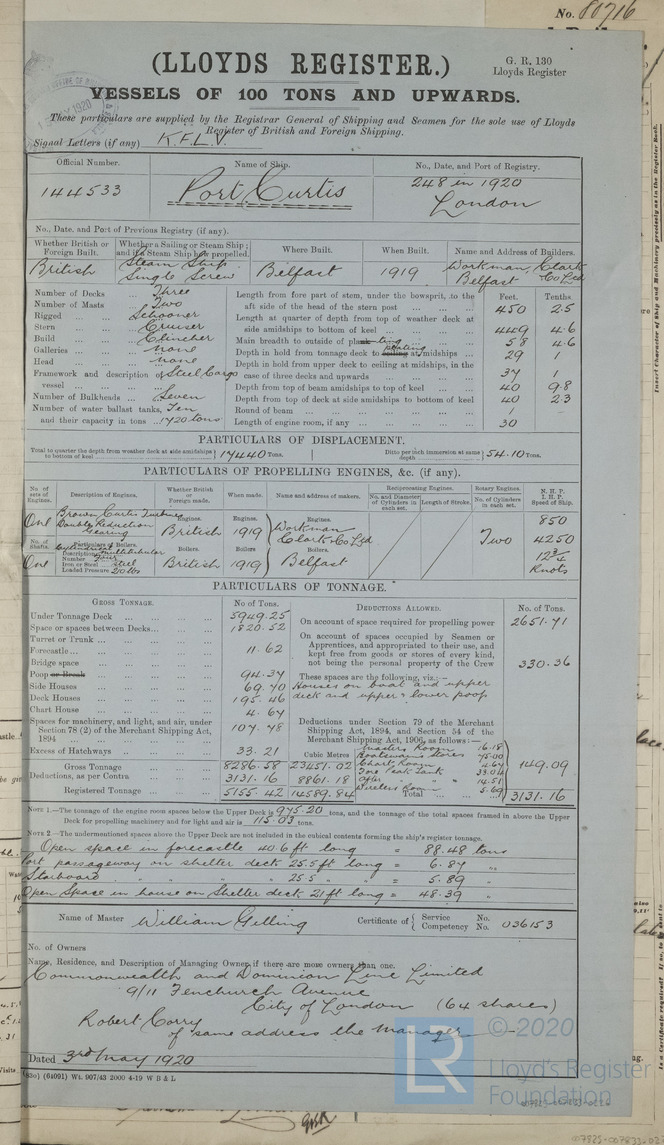 No. 80716
(LLOYDS REGISTER.)
G. R. 130
Lloyds Register
VESSELS OF 100 TONS AND UPWARDS.
These particulars are supplied by the Registrar General of Shipping and Seamen for the sole use of Lloyds
Register of British and Foreign Shipping.
Signal Letters (if any) K.F.L.V.
Official Number. Name of Ship. No., Date, and Port of Registry.
144533 Port Curtis 248 in 1920
London
No., Date, and Port of Previous Registry (if any).
Whether British or Foreign Built. Whether a Sailing or Steam Ship; and if a Steam Ship how propelled. Where Built. When Built. Name and Address of Builders.
British Steam Ship Single Screw Belfast 1919 Workman, Clark & Co Ltd Belfast
Number of Decks ... Three
Number of Masts ... Two
Rigged ... Schooner
Stern ... Cruiser
Build ... Clincher
Galleries ... none
Head ... none
Framework and description of vessel ... Steel Cargo
Number of Bulkheads ... Seven
Number of water ballast tanks, Ten
and their capacity in tons ... 1720 tons
Feet. Tenths
Length from fore part of stem, under the bowsprit, to the aft side of the head of the stern post ... 450 2.5
Length at quarter of depth from top of weather deck at side amidships to bottom of keel ... 449 4.6
Main breadth to outside of plating ... 58 4.6
Depth in hold from tonnage deck to ceiling plating at midships ... 29 1
Depth in hold from upper deck to ceiling at midships, in the case of three decks and upwards ... 37 1
Depth from top of beam amidships to top of keel ... 40 9.8
Depth from top of deck at side amidships to bottom of keel 40 2.3
Round of beam ... 1
Length of engine room, if any ... 30
PARTICULARS OF DISPLACEMENT.
Total to quarter the depth from weather deck at side amidships to bottom of keel 17440 Tons. Ditto per inch immersion at same depth 54.10 Tons.
PARTICULARS OF PROPELLING ENGINES, &c. (if any).
No. of sets of Engines. Description of Engines. Whether British or Foreign made. When made. Name and address of makers. Reciprocating Engines. No. and Diameter of Cylinders in each set. Length of Stroke. Rotary Engines. No. of Cylinders in each set. N.H.P. I.H.P. Speed of Ship.
One Brown Curtis Turbines Double Reduction Gearing Engines. British Engines. 1919 Engines. Workman Clark & Co Ltd Two 850
4250
No. of Shafts. Particulars of Boilers.
One Description Cylindrical multitubular
Number Four
Iron or Steel Steel
Loaded Pressure 210 lbs
Boilers. British Boilers 1919 Boilers. Belfast 12 3/4 Knots
PARTICULARS OF TONNAGE.
GROSS TONNAGE. No of Tons. DEDUCTIONS ALLOWED. No. of Tons.
Under Tonnage Deck ... 5949.25
Space or spaces between Decks ... 1820.52
Turret or Trunk ...
Forecastle ... 11.62
Bridge space
Poop or Break ... 94.37
Side Houses ... 69.70
Deck Houses ... 195.46
Chart House ... 4.64
Spaces for machinery, and light, and air, under Section 78 (2) of the Merchant Shipping Act, 1894 ... 107.78
Excess of Hatchways ... 33.21
Cubic Metres
Gross Tonnage 8286.58 23451.02
Deductions, as per Contra 3131.16 8861.18
Registered Tonnage 5155.42 14589.84
On account of space required for propelling power 2651.71
On account of spaces occupied by Seamen or Apprentices, and appropriated to their use, and kept free from goods or stores of every kind, not being the personal property of the Crew 330.36
These spaces are the following, viz.:—
Houses on boat and upper deck and upper & lower poop
Deductions under Section 79 of the Merchant Shipping Act, 1894, and Section 54 of the Merchant Shipping Act, 1906, as follows:—
Masters Room 16.18
Boatswains Stores 75.00
Chart Room 4.64
Fore Peak Tank 33.04
After " " 14.51
Wireless Room 5.69
149.09
Total ... 3131.16
NOTE 1.—The tonnage of the engine room spaces below the Upper Deck is 975.20 tons, and the tonnage of the total spaces framed in above the Upper
Deck for propelling machinery and for light and air is 115.03 tons.
NOTE 2.—The undermentioned spaces above the Upper Deck are not included in the cubical contents forming the ship's register tonnage.
Open space in forecastle 40.6 ft long = 88.48 tons
Port passageway on shelter deck 25.5 ft long = 6.87 "
Starboard " " " 25.5 " = 5.89 "
Open Space in house on Shelter deck 21 ft long = 48.39 "
Name of Master William Gelling Certificate of { Service No. Competency No. 036153
No. of Owners
Name, Residence, and Description of Managing Owner, if there are more owners than one.
Commonwealth and Dominion Line Limited
9/11 Fenchurch Avenue
City of London (64 shares)
Robert Corry
of same address the Manager
Dated 3rd May 1920
(83o) (64091) Wt. 907/43 2000 4-19 W B & L
LR
© 2020
Lloyd's Register
Foundation